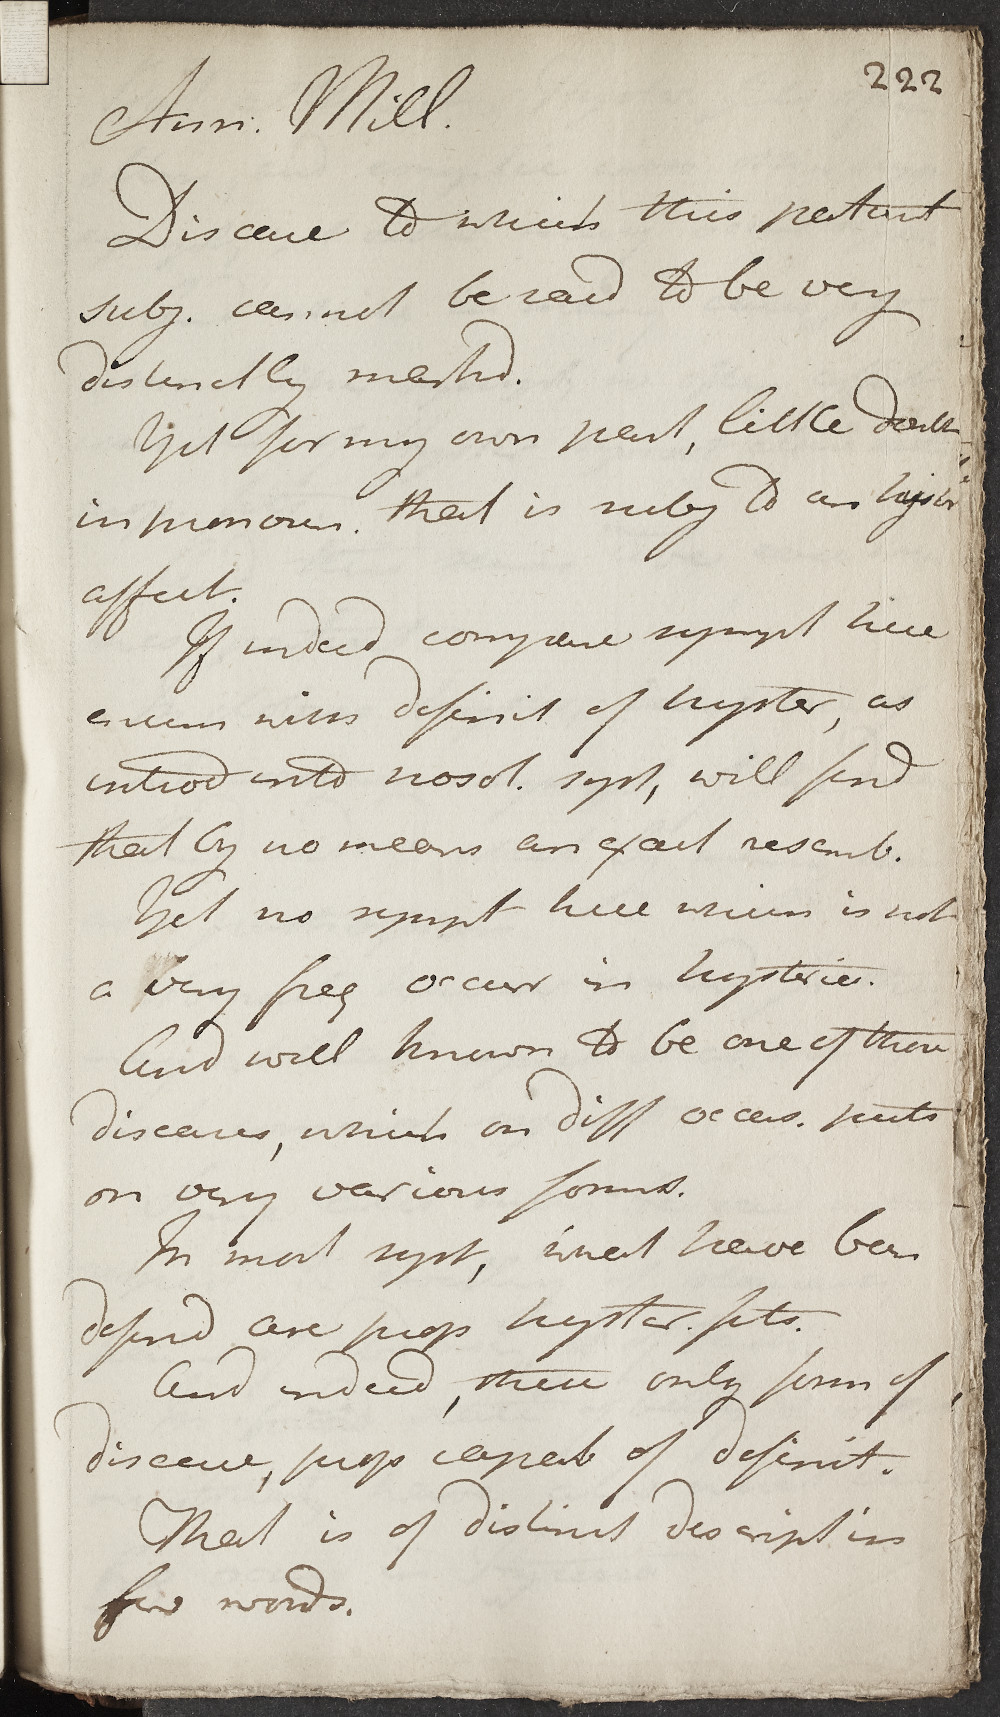 222
Ann. Mill.
Disease to which this patient
subj. cannot be said to be very
distinctly markd.
Yet for my own part, little doubt
in pronoun. that is subj to an hyster
affect.
If indeed compare sympt here
enum with definit of hyster, as
introd into nosol. syst, will find
that by no means an exact resemb.
Yet no sympt here which is not
a very freq occurr in hysteria.
And well known to be one of those
diseases, which on diff occas. puts
on very various forms.
In most syst, what have been
defind are prop hyster. fits.
And indeed, these only form of
disease, prop capab of definit.
That is of distinct descript in
few words.